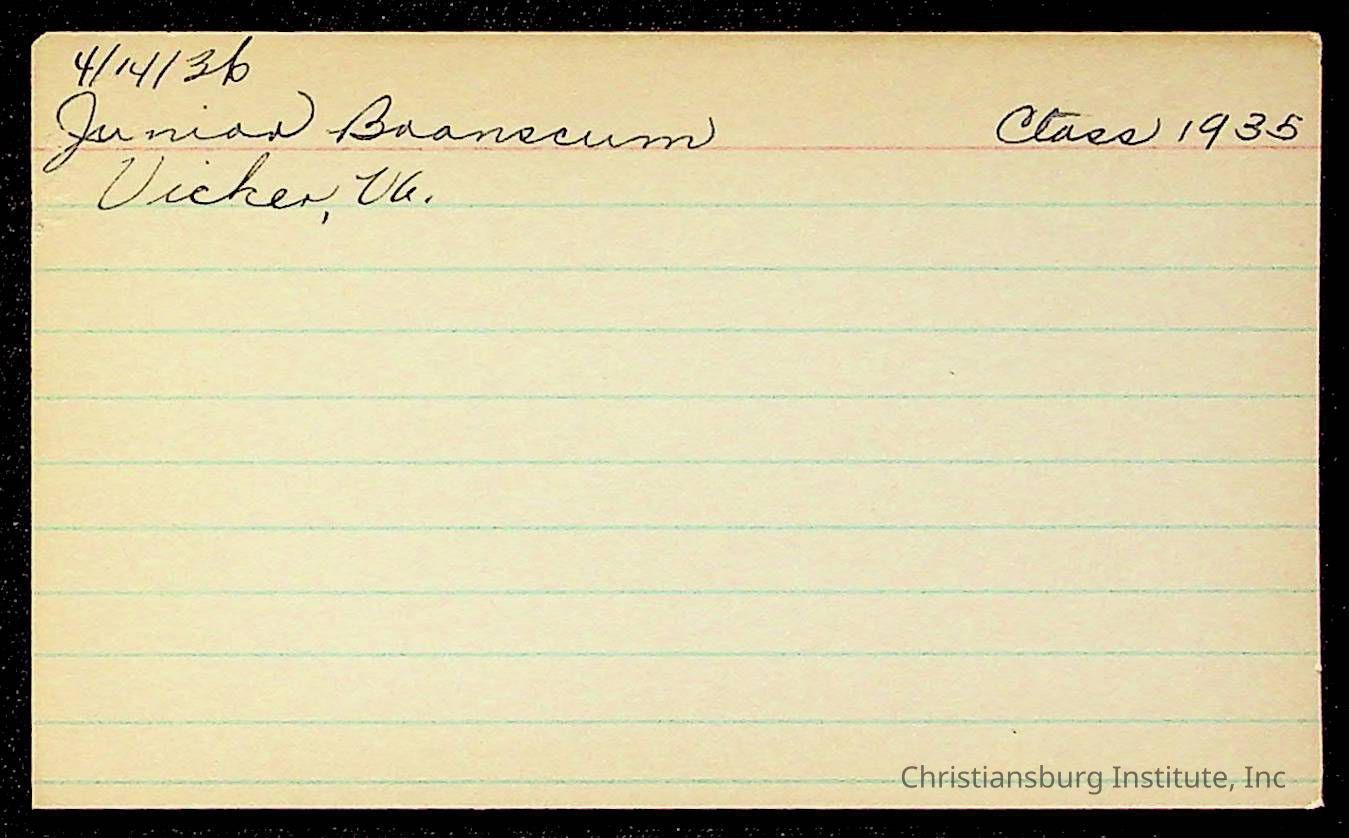 4/14/36
Junior Branscum Class 1935
Vicker, Va.
Christiansburg Institute, Inc